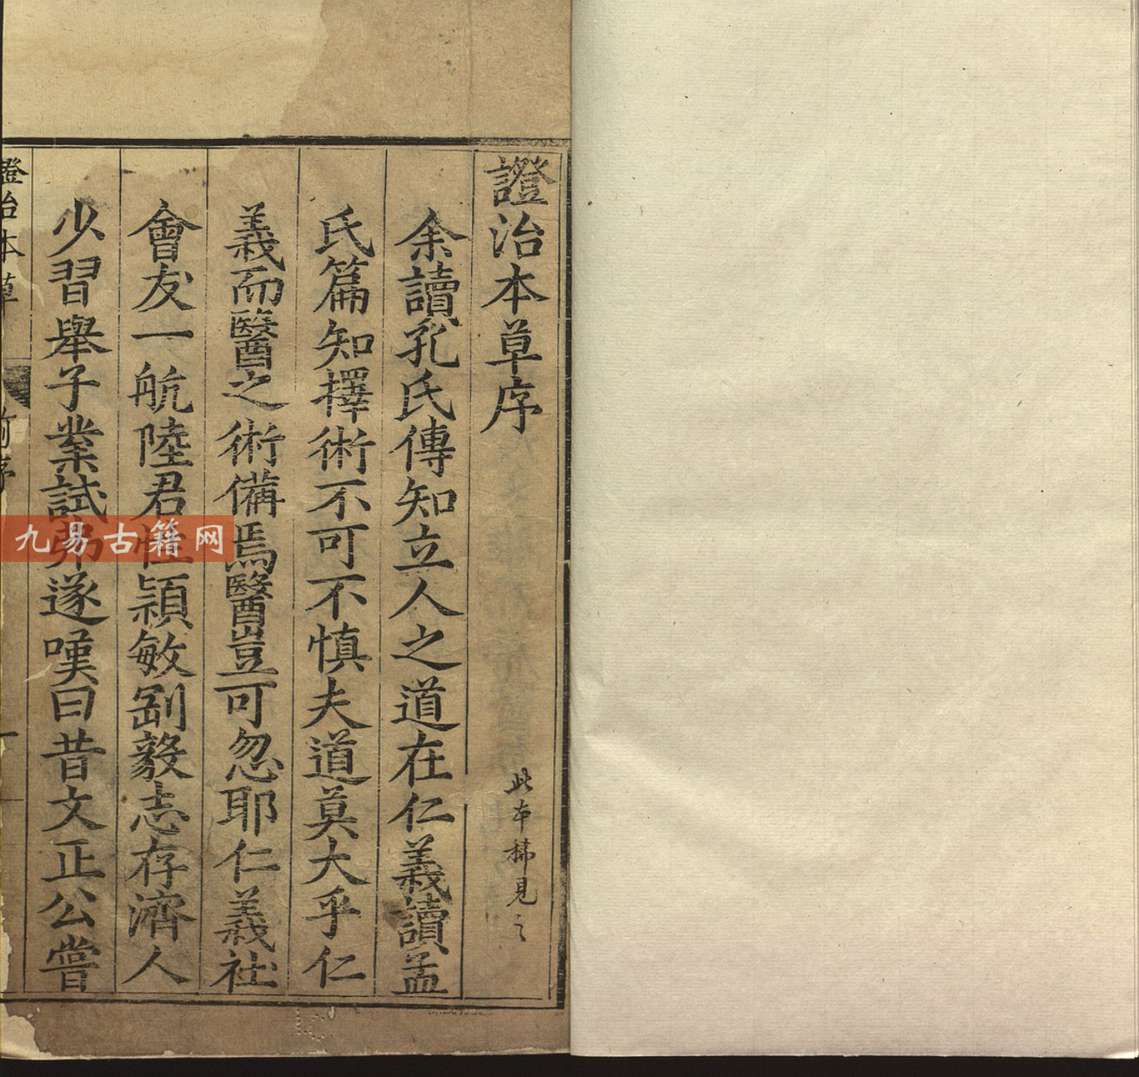 證治本草序
此本稀見之
余讀孔氏傳知立人之道在仁義讀孟
氏篇知擇術不可不慎夫道莫大乎仁
義而醫之術備焉醫豈可忽耶仁義社
會友一航陸君性穎敏剛毅志存濟人
少習舉子業試弗遂嘆曰昔文正公嘗
證治本草 前序 一
九易古籍网